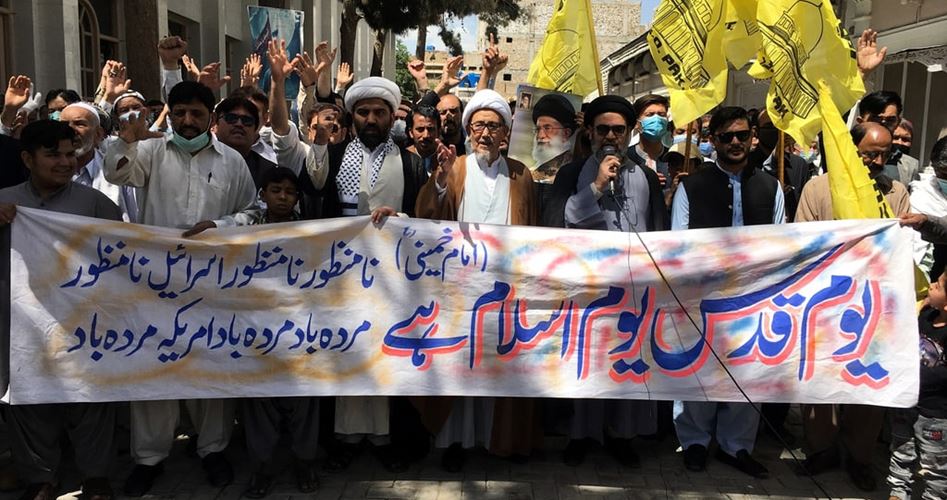 یوم قدس یوم اسلام ہے
(امام خمینیؒ)
نامنظور نامنظور اسرائیل نامنظور
مردہ باد مردہ باد امریکہ مردہ باد